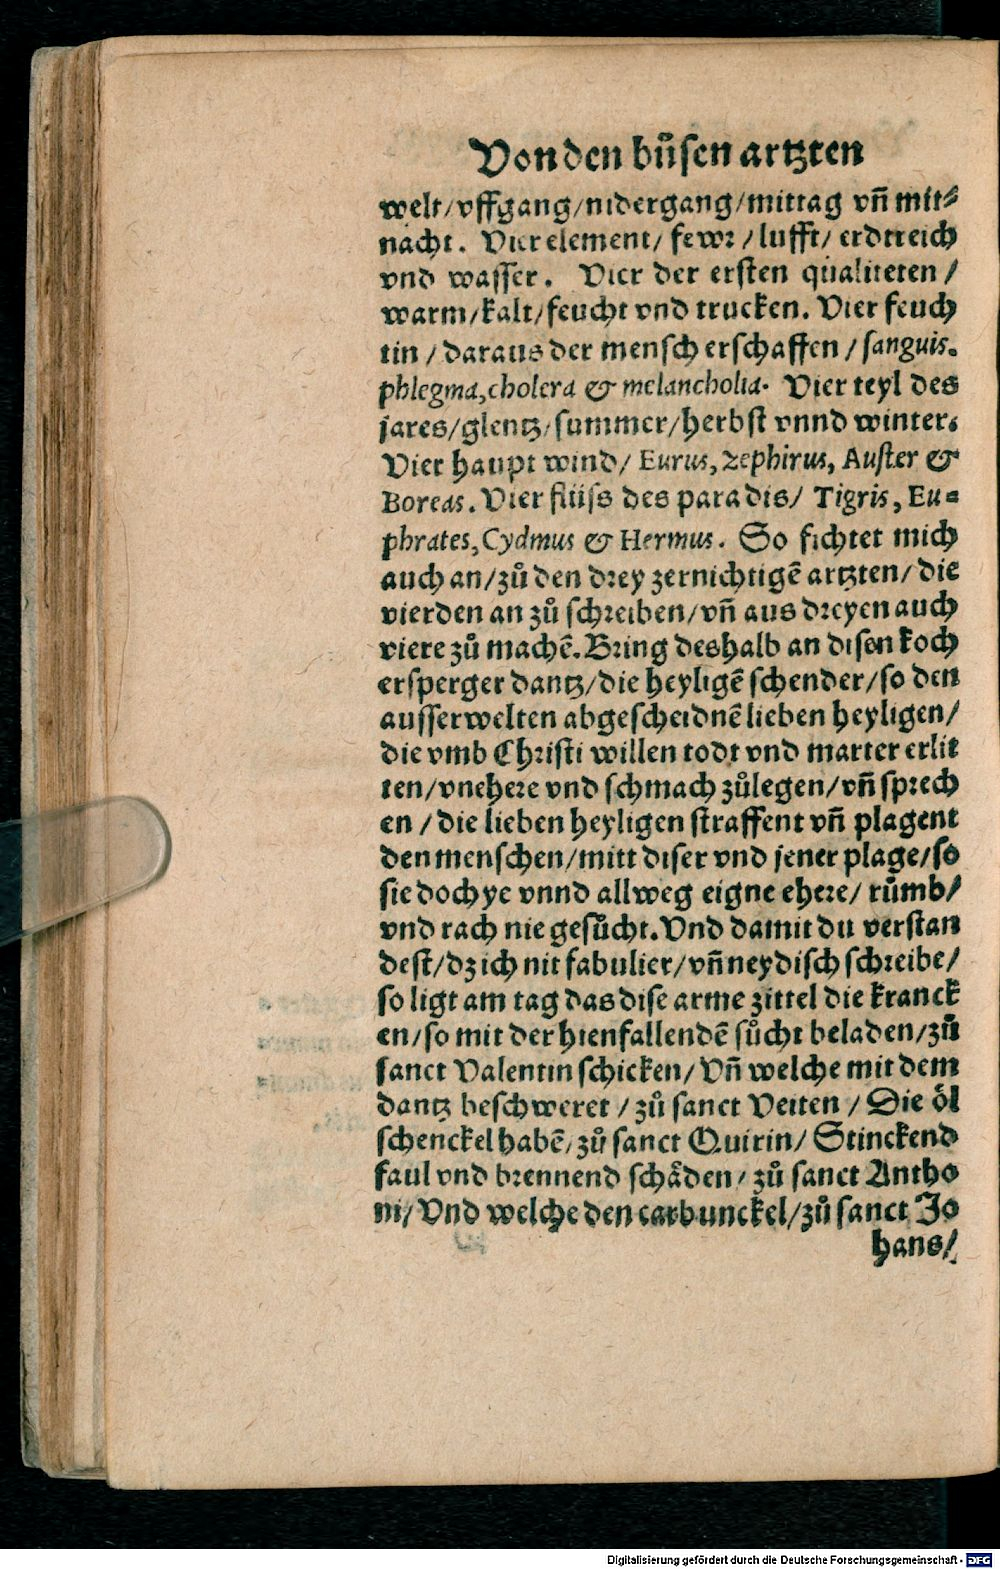 Von den bůsen artzten
welt/vffgang/nidergang/mittag vñ mit⸗
nacht. Vier element/ fewr/lufft/ erdtreich
vnd wasser. Vier der ersten qualiteten/
warm/kalt/feucht vnd trucken. Vier feuch
tin/daraus der mensch erschaffen/sanguis.
phlegma, cholera & melancholia. Vier teyl des
jares/glentz/summer/herbst vnnd winter.
Vier haupt wind/ Eurus, zephirus, Auster &
Boreas. Vier flüss des paradis/ Tigris, Eu⸗
phrates, Cydmus & Hermus. So fichtet mich
auch an/zů den drey zernichtigē artzten/die
vierden an zů schreiben/vñ aus dreyen auch
viere zů machē. Bring deshalb an disen koch
ersperger dantz/die heyligē schender/so den
ausserwelten abgescheidnē lieben heyligen/
die vmb Christi willen todt vnd marter erlit
ten/vnehere vnd schmach zůlegen/vñ sprech
en/die lieben heyligen straffent vñ plagent
den menschen/mitt diser vnd jener plage/so
sie doch ye vnnd allweg eigne ehere/ růmb/
vnd rach nie gesůcht. Vnd damit du verstan
dest/dz ich nit fabulier/vñ neydisch schreibe/
so ligt am tag das dise arme zittel die kranck
en/so mit der hienfallendē sůcht beladen/zů
sanct Valentin schicken/Vñ welche mit dem
dantz beschweret/zů sanct Veiten/Die öl
schenckel habē/zů sanct Quirin/Stinckend
faul vnd brennend schåden/zů sanct Antho
ni/Vnd welche den carbunckel/zů sanct Jo
hans/
Digitalisierung gefördert durch die Deutsche Forschungsgemeinschaft - DFG